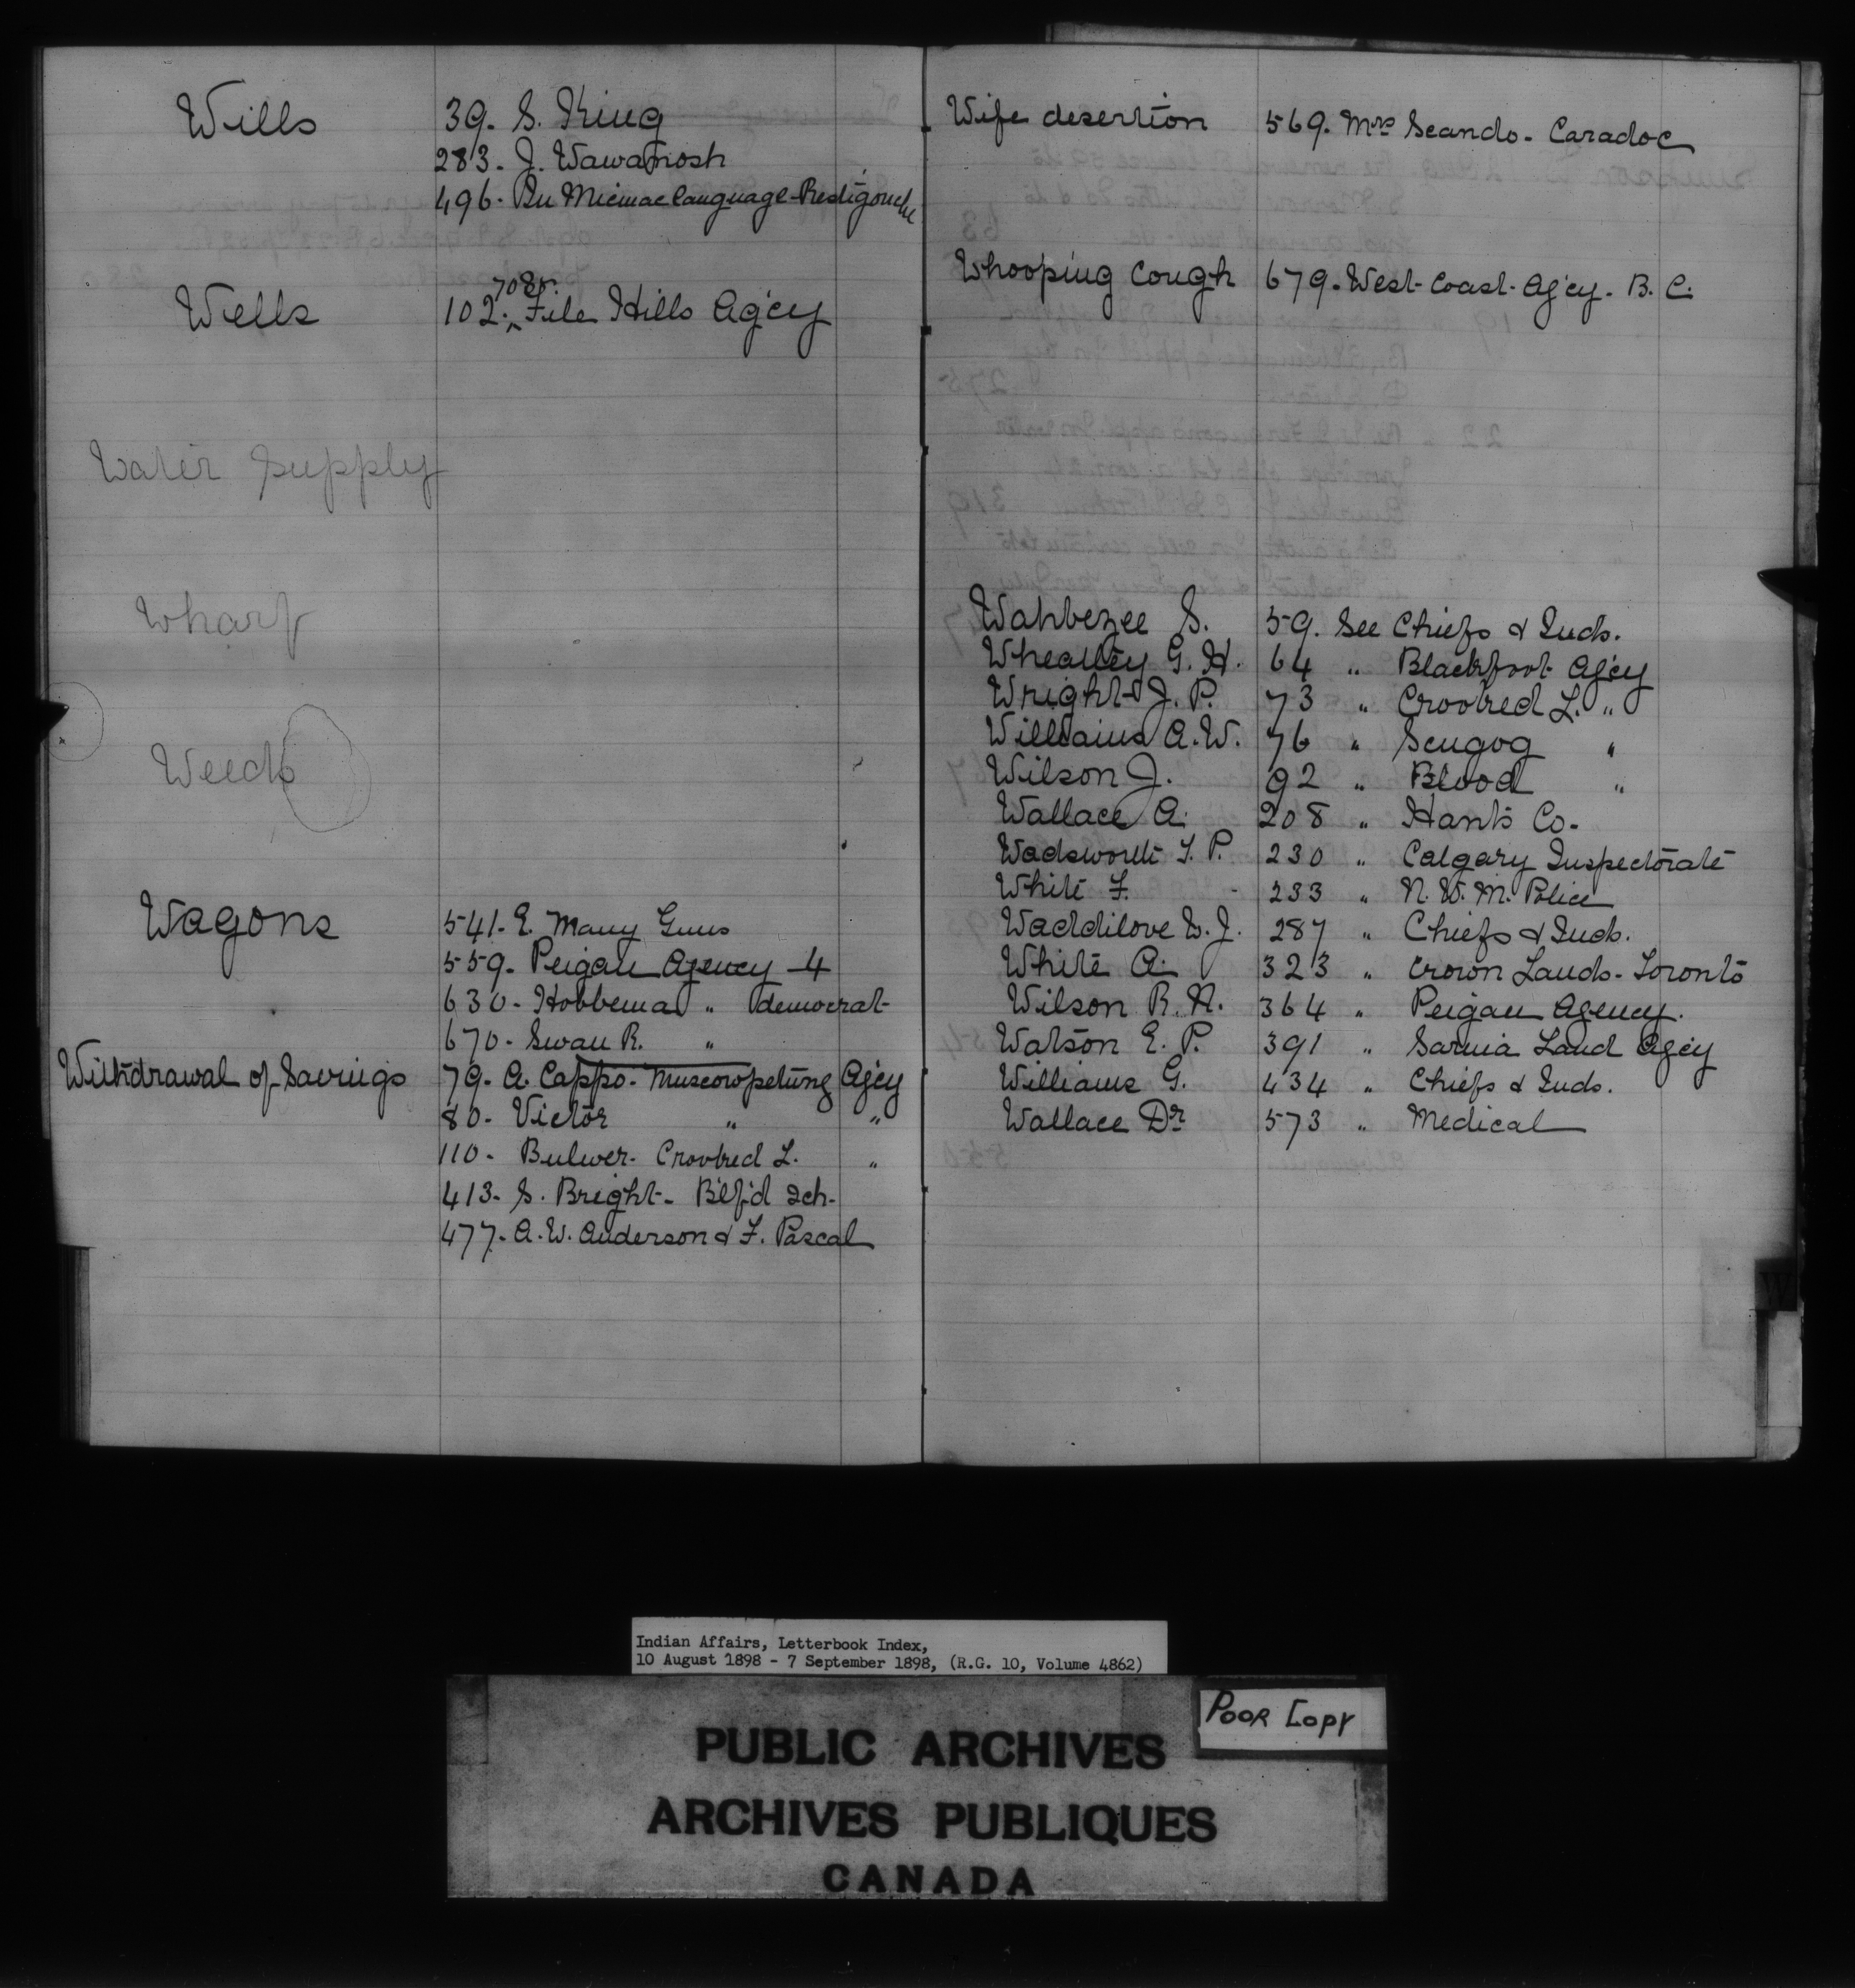 Wills 39. S. King
283. J. Wawanosh
496. In Micmac language-Restigouche
708.
Wells 102. File Hills Ag'cy
Water Supply
Wharf
Weeds
Wagons 541. E. Many Guns
559. Peigan Agency 4
630. Hobbema " democrat
670. Swan R. "
Withdrawal of Savings 79. A. Cappo. Muscowpetung Ag'cy
80. Victor " "
110. Bulwer. Crooked L. "
413. S. Bright. B'lf'd Sch.
477. A.W. Anderson & F. Pascal
Wife desertion 569. Mrs Seando. Caradoc
Whooping Cough 679. West Coast Ag'cy. B.C.
Wahbezee S. 59. See Chiefs & Inds.
Wheatley G.H. 64 " Blackfoot Ag'cy
Wright J.P. 73 " Crooked L. "
Williams A.W. 76 " Scugog "
Wilson J. 92 " Blood "
Wallace A. 208 " Hants Co.
Wadsworth T.P. 230 " Calgary Inspectorate
White F. 233 " N.W.M. Police
Waddilove W.J. 287 " Chiefs & Inds.
White A. 323 " Crown Lands. Toronto
Wilson R.N. 364 " Peigan Agency.
Watson E.P. 391 " Sarnia Land Ag'cy
Williams G. 434 " Chiefs & Inds.
Wallace Dr 573 " Medical
W
Indian Affairs, Letterbook Index,
10 August 1898 - 7 September 1898, (R.G. 10, Volume 4862)
POOR COPY
PUBLIC ARCHIVES
ARCHIVES PUBLIQUES
CANADA